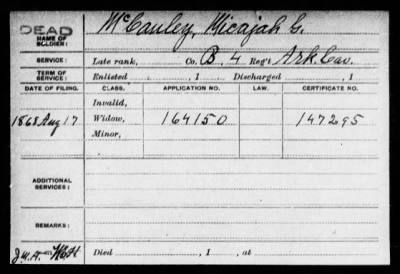 DEAD
NAME OF SOLDIER: McCauley, Micajah G.
SERVICE: Late rank, Co. B. 4 Reg't Ark. Cav.
TERM OF SERVICE: Enlisted , 1 Discharged , 1
DATE OF FILING. CLASS. APPLICATION NO. LAW. CERTIFICATE NO.
Invalid,
1868 Aug 17 Widow, 164150 147295
Minor,
ADDITIONAL SERVICES:
REMARKS:
Died , 1 , at